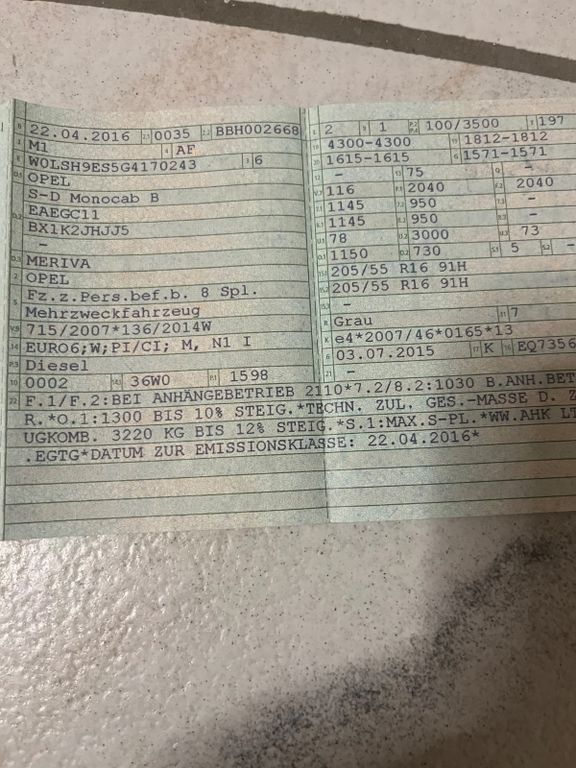 B 22.04.2016 2.1 0035 2.2 BBH002668
J M1 4 AF
E W0LSH9ES5G4170243 3 6
D.1 OPEL
S-D Monocab B
D.2 EAEGC11
BX1K2JHJJ5
–
D.3 MERIVA
2 OPEL
5 Fz.z.Pers.bef.b. 8 Spl.
Mehrzweckfahrzeug
V.9 715/2007*136/2014W
14 EURO6;W;PI/CI; M, N1 I
P.3 Diesel
10 0002 14.1 36W0 P.1 1598
L 2 9 1 P.2 P.4 100/3500 T 197
18 4300-4300 19 1812-1812
20 1615-1615 G 1571-1571
12 – 13 75 Q –
V.7 116 F.1 2040 F.2 2040
7.1 1145 7.2 950 7.3 –
8.1 1145 8.2 950 8.3 –
U.1 78 U.2 3000 U.3 73
O.1 1150 O.2 730 S.1 5 S.2 –
15.1 205/55 R16 91H
15.2 205/55 R16 91H
15.3 –
R Grau 11 7
K e4*2007/46*0165*13
6 03.07.2015 17 K 16 EQ7356
21 –
22 F.1/F.2:BEI ANHÄNGEBETRIEB 2110*7.2/8.2:1030 B.ANH.BET
R.*O.1:1300 BIS 10% STEIG.*TECHN. ZUL. GES.-MASSE D. Z
UGKOMB. 3220 KG BIS 12% STEIG.*S.1:MAX.S-PL.*WW.AHK LT
.EGTG*DATUM ZUR EMISSIONSKLASSE: 22.04.2016*